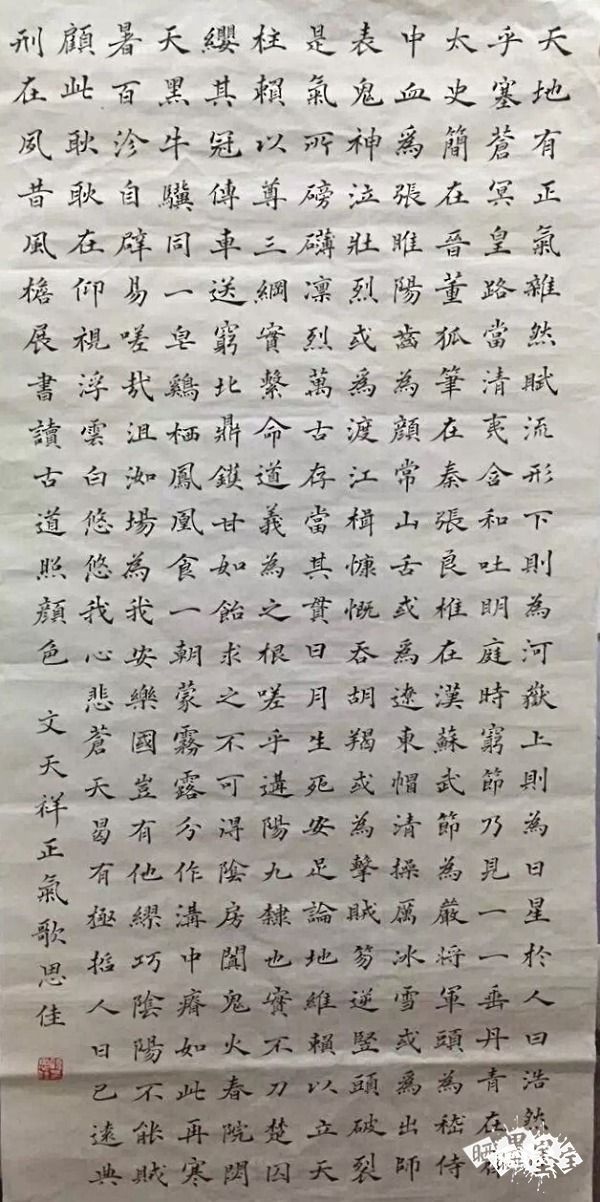 天地有正氣雜然賦流形下則為河嶽上則為日星於人曰浩然
乎塞蒼冥皇路當清夷含和吐明庭時窮節乃見一一垂丹青在
太史簡在晉董狐筆在秦張良椎在漢蘇武節為嚴將軍頭為嵇侍
中血爲張睢陽齒為顏常山舌或爲遼東帽清操厲冰雪或爲出師
表鬼神泣壯烈或爲渡江楫慷慨吞胡羯或為擊賊笏逆豎頭破裂
是氣所磅礴凜烈萬古存當其貫日月生死安足論地維賴以立天
柱賴以尊三綱實繫命道義為之根嗟乎遘陽九隸也實不刀楚囚
纓其冠傳車送窮北鼎鑊甘如飴求之不可得陰房闐鬼火春院閟
天黑牛驥同一皂鷄栖鳳凰食一朝蒙霧露分作溝中瘠如此再寒
暑百沴自辟易嗟哉沮洳場為我安樂國豈有他繆巧陰陽不能賊
顧此耿耿在仰視浮雲白悠悠我心悲蒼天曷有極哲人日已遠典
刑在夙昔風檐展書讀古道照顏色 文天祥正氣歌思佳